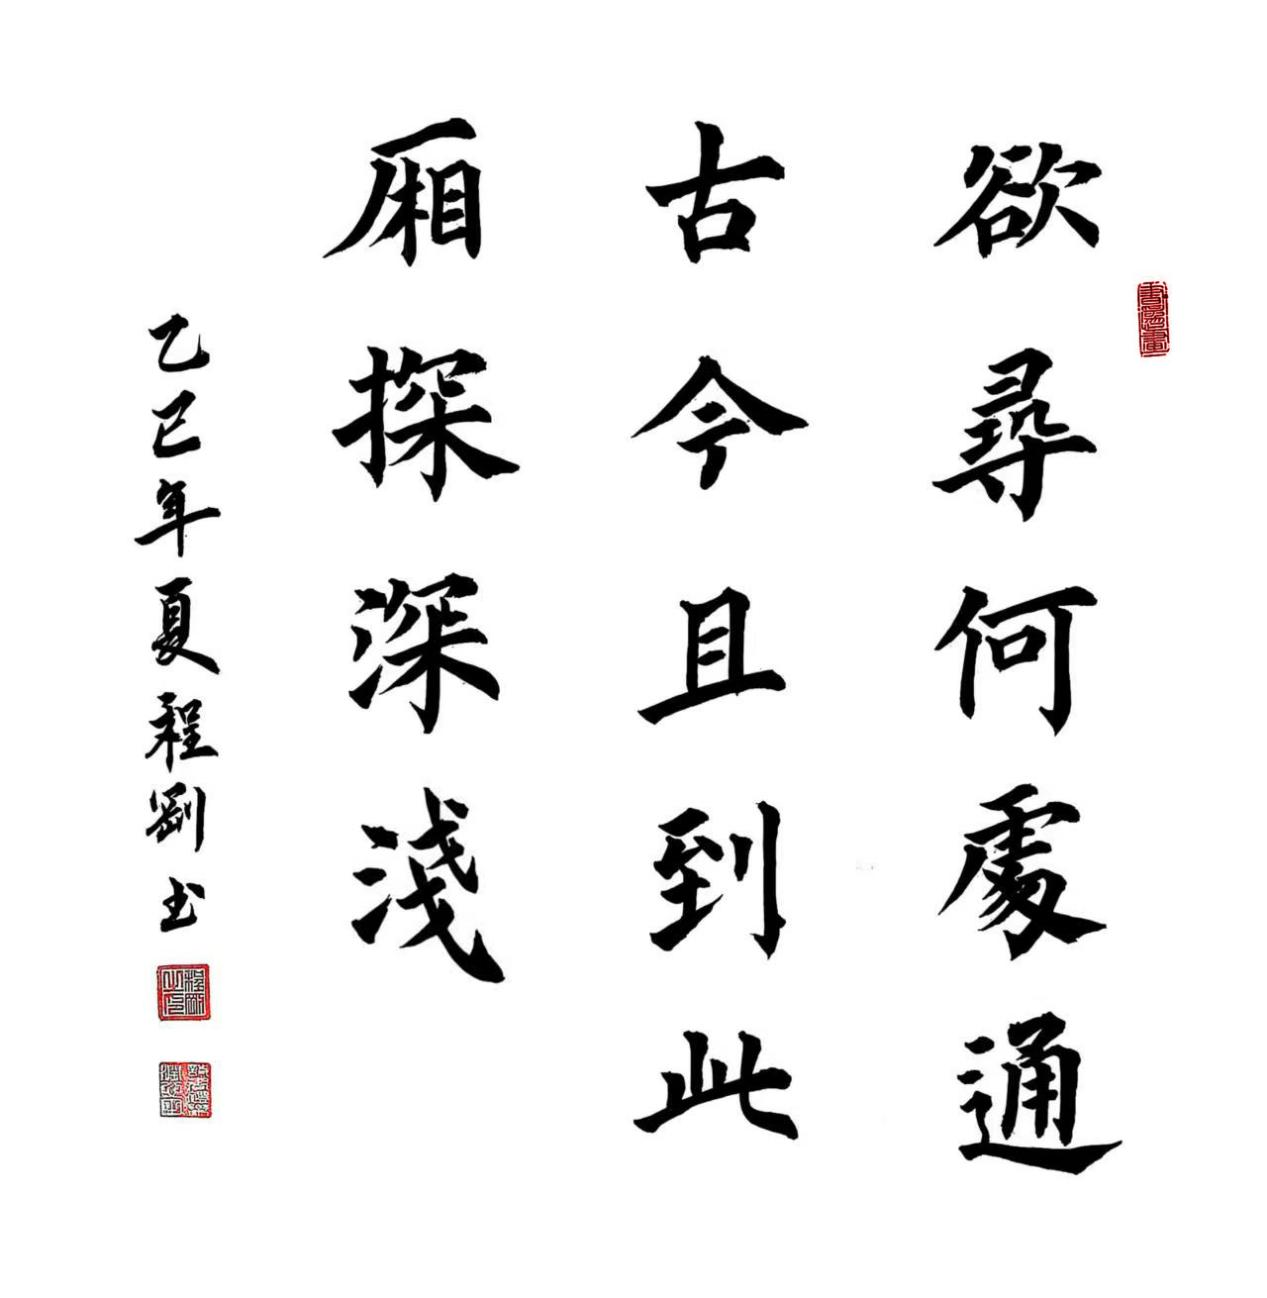 欲尋何處通
古今且到此
厢探深淺
乙巳年夏程剛书
程剛之印